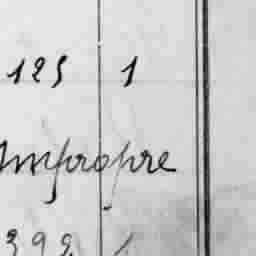 125 1
Impropre
392 1